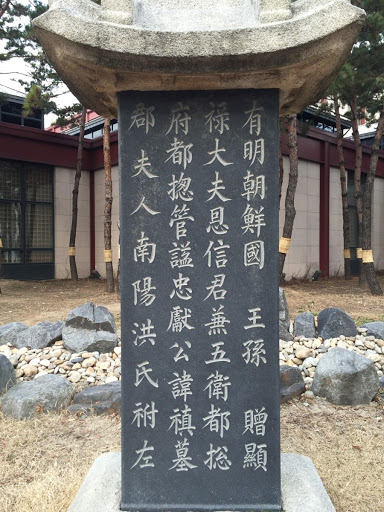 有明朝鮮國 王孫 贈顯
祿大夫恩信君兼五衛都総
府都揔管謚忠獻公諱禛墓
郡夫人南陽洪氏祔左